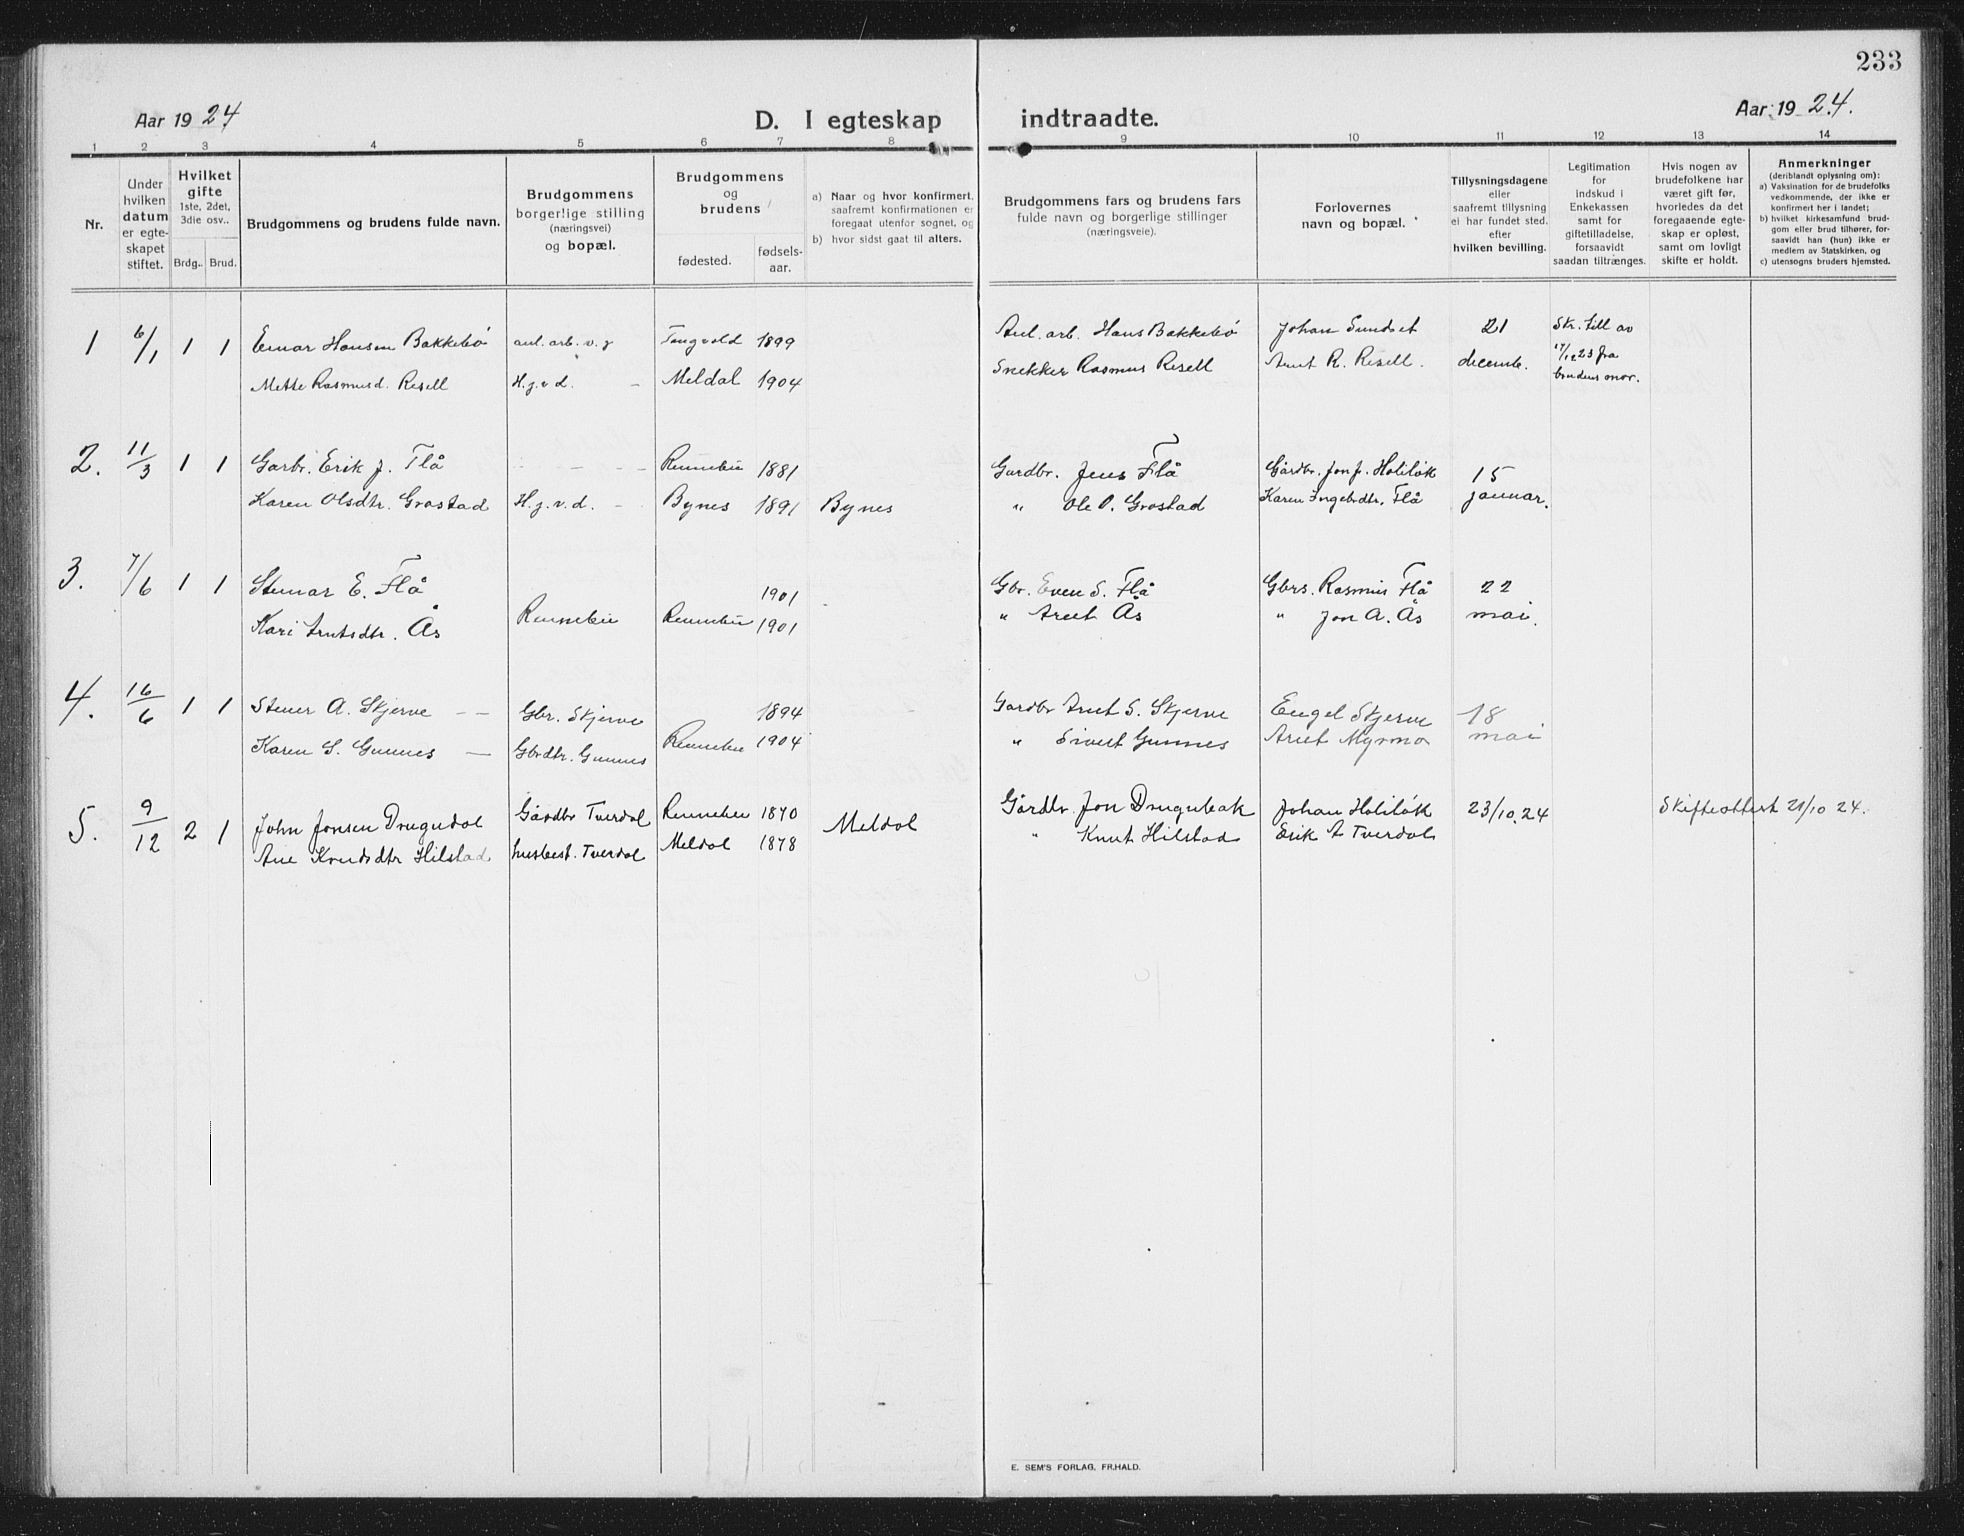 233
Aar 19 24
D. I egteskap indtraadte.
Aar 19 24.
1 2 3 4 5 6 7 8 9 10 11 12 13 14
Nr.
Under hvilken datum er egte-skapet stiftet.
Hvilket gifte 1ste, 2det, 3die osv..
Brdg.. Brud.
Brudgommens og brudens fulde navn.
Brudgommens borgerlige stilling (næringsvei) og bopæl.
Brudgommens og brudens
fødested.
fødsels-aar.
a) Naar og hvor konfirmert, saafremt konfirmationen er foregaat utenfor sognet, og
b) hvor sidst gaat til alters.
Brudgommens fars og brudens fars fulde navn og borgerlige stillinger (næringsveie).
Forlovernes navn og bopæl.
Tillysningsdagene eller saafremt tillysning ei har fundet sted. efter hvilken bevilling.
Legitimation for indskud i Enkekassen samt for giftetilladelse, forsaavidt saadan tiltrænges.
Hvis nogen av brudefolkene har været gift før, hvorledes da det foregaaende egte-skap er opløst, samt om lovligt skifte er holdt.
Anmerkninger
(deriblandt oplysning om):
a) Vaksination for de brudefolks vedkommende, der ikke er konfirmert her i landet;
b) hvilket kirkesamfund brud-gom eller brud tilhører, for-saavidt han (hun) ikke er medlem av Statskirken, og
c) utensogns bruders hjemsted.
1 6/1 1 1 Einar Hansen Bakkebø anl. arb. v. g Tingvold 1899 Anl. arb. Hans Bakkebø Johan Sundset 21 Skr. till av
Mette Rasmusd. Resell H.g.v d. - Meldal 1904 Snekker Rasmus Resell Arnt R. Resell. decembr. 17/12 23 fra
brudens mor.
2. 11/3 1 1 Garbr. Erik J. Flå - - - Rennebu 1881 Gardbr. Jens Flå Gårdbr. Jon J. Holiløk 15
Karen Olsdtr. Grostad H.g.v.d. - Bynes 1891 Bynes " Ole O. Grostad Karen Ingebrdtr. Flå januar.
3. 7/6 1 1 Steinar E. Flå 1901 Gbr. Even S. Flå Gbrs. Rasmus Flå 22
Kari Arntsdtr. Ås Rennebu Rennebu 1901 " Arnt Ås " Jon A. Ås mai.
4. 16/6 1 1 Stener A. Skjerve - - Gbr. Skjerve 1894 Gardbr Arnt S. Skjerve Engel Skjerve 18
Karen S. Gunnes - Gbrdtr. Gunnes Rennebu 1904 " Sivert Gunnes Arnt Myrmo mai
5. 9/12 2 1 John Jonsen Drugudal Gårdbr Tverdal Rennebu 1870 Meldal Gårdbr. Jon Drugubak Johan Holiløk 23/10.24 Skifteattest 21/10 24.
Ane Knudsdtr Hilstad husbest. Tverdal Meldal 1878 " Knut Hilstad Erik A Tverdal
E. SEM'S FORLAG, FR.HALD.